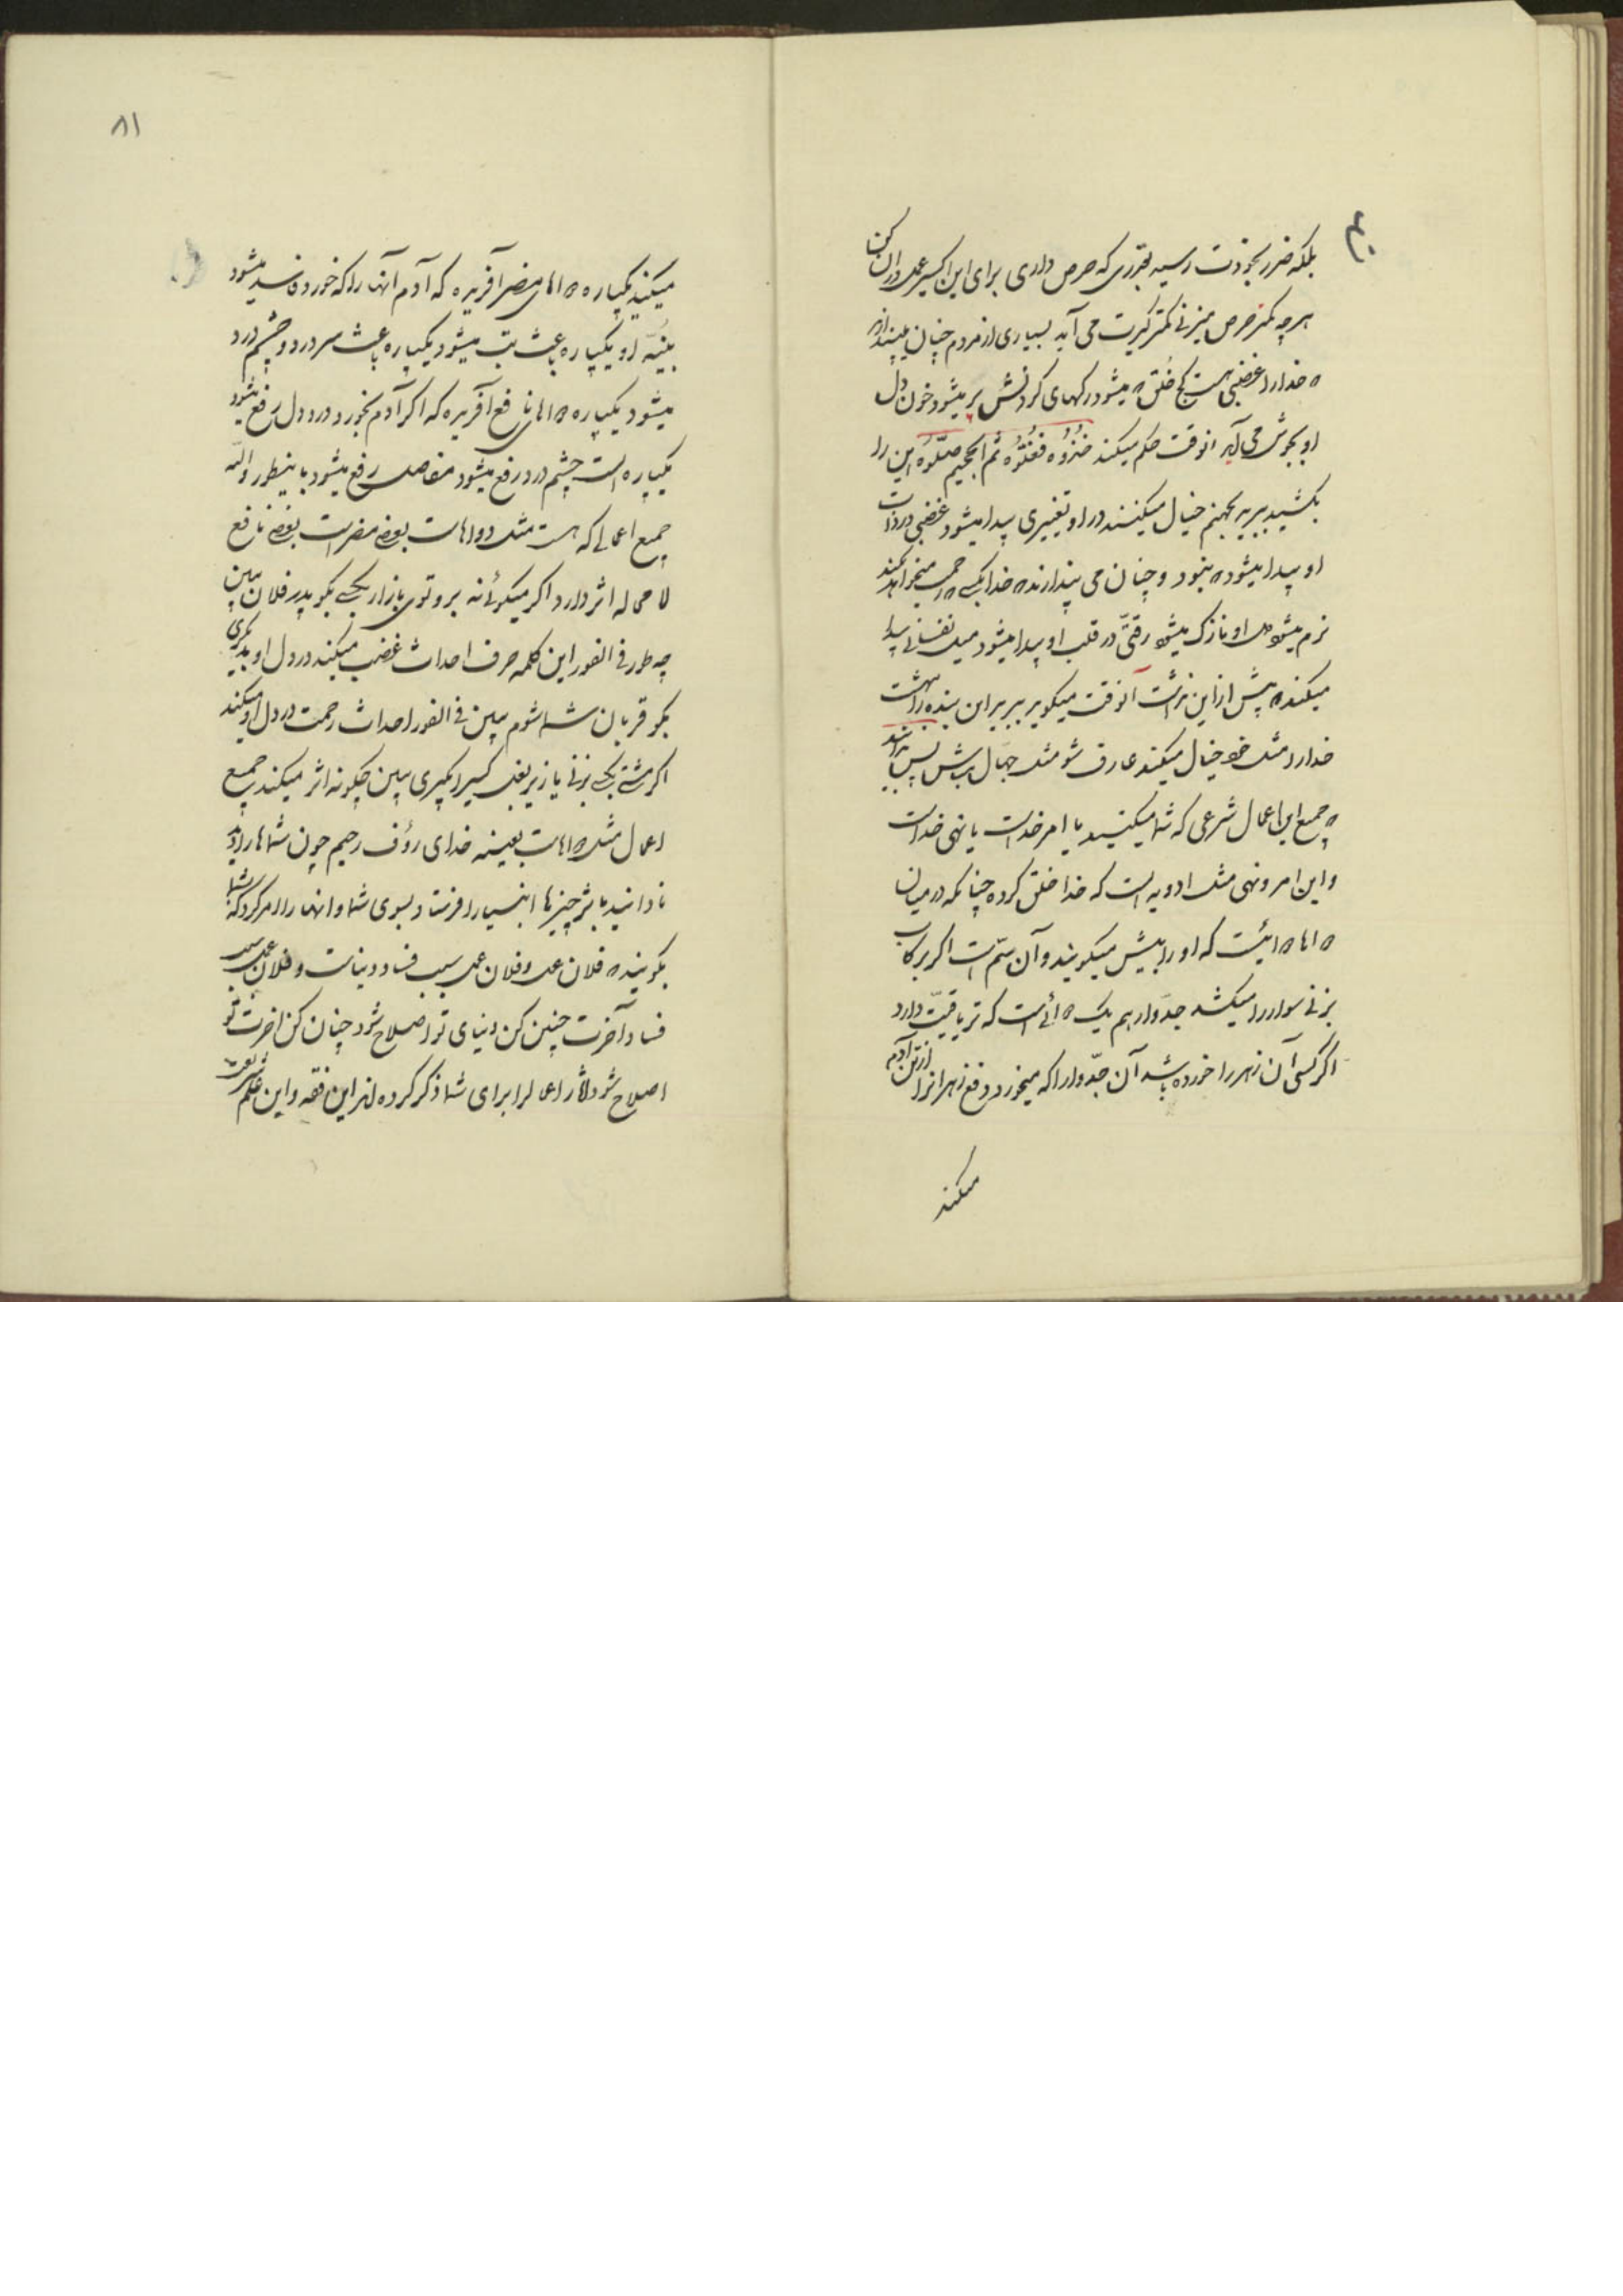 بلکه ضرر بخودت رسیده بقدری که حرص داری برای این اکسیر عمل دران کن
هرچه کمتر حرص میزنی کمتر گیرت می آید بسیاری از مردم چنان میپندارند
که خدا را غضبی هست کج خلق که میشود رگهای گردنش پر میشود خون دل
او بجوش می آید انوقت حکم میکند خُذُوُه فَغُلّوُه ثم الجحیم صَلّوُه این را
بکشید ببرید بجهنم خیال میکنند در او تغییری پیدا میشود غضبی در ذات
او پیدا میشود که نبود و چنان می پندارند که خدا بکسی که رحم میخواهد بکند
نرم میشود دل او نازک میشود رقتّی در قلب او پیدا میشود میل نفسانی پیدا
میکند که پیش از این نداشت آنوقت میگوید ببرید این بنده را بهشت
خدا را مثل خود خیال میکنند عارف شو مثل جهال مباش پس بدانید
که جمیع این اعمال شرعی که شما میکنید یا امر خداست یا نهی خداست
و این امر و نهی مثل ادویه است که خدا خلق کرده چنانکه در میان
دواها دوائیست که او را بیش میگویند و آن سمّ است اگر برکاب
بزنی سوار را میکشد جدوار هم یک دوائی است که تریاقیّت دارد
اگر کسی آن زهر را خورده باشد آن جدّوار را که میخورد دفع زهر انرا از تن آدم
میکند
۸۱
میکند یکپاره دواهای مضر آفریده که آدم آنها را که خورد فاسد میشود
بنیهٔ او یکپاره باعث تب میشود یکپاره باعث سردرد و چشم درد
میشود یکپاره دواهای نافع آفریده که اگر آدم بخورد درد دل رفع میشود
یکپاره است چشم درد رفع میشود مفاصل رفع میشود باینطور والله
جمیع اعمالی که هست مثل دواهاست بعضی مضر است بعضی نافع
لامحاله اثر دارد اگر میگوئی نه برو توی بازار بکسی بگو پدر فلان ببین
چه طور فی الفور این کلمه حرف احداث غضب میکند در دل او بدیگری
بگو قربان شما شوم ببین فی الفور احداث رحمت در دل او میکند
اگر مشتی بکسی بزنی یا زیر بغل کسی را بگیری ببین چگونه اثر میکند پس جمیع
اعمال مثل دواهاست بعینه خدای رؤف رحیم چون شماها را دید
نادانید باثر چیزها انبیا را فرستاد بسوی شما و انها را امر کرد که بشما
بگویند که فلان عمل و فلان عمل سبب فساد دنیات و فلان عمل سبب
فساد آخرت چنین کن دنیای تو اصلاح شود چنان کن اخرت تو
اصلاح شود اثار اعمال را برای شما ذکر کرده اند این فقه و این علم شریعت